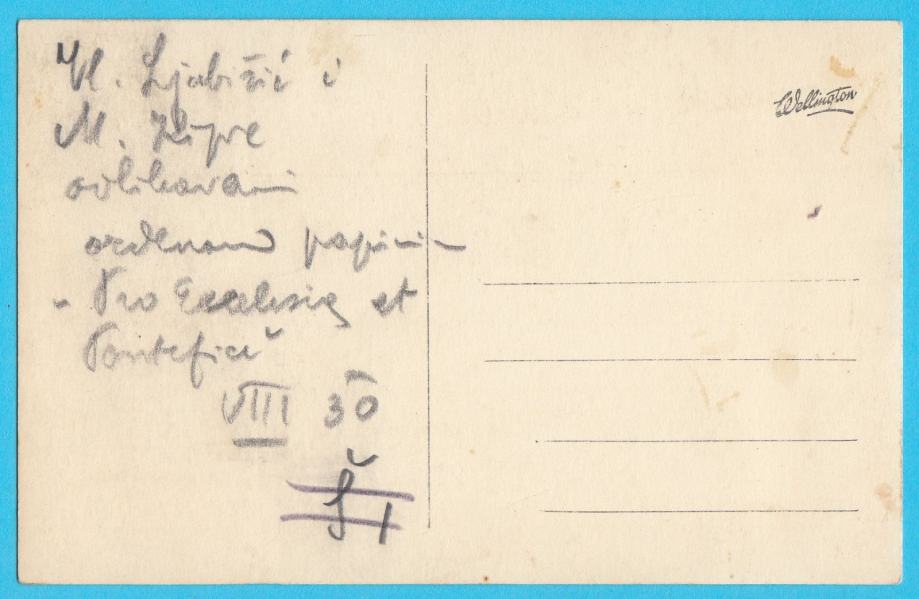 Vl. Ljubišić i
M.
odlikovani
ordenom papinim
- Pro Ecclesia et
Pontefice"
VIII 30
Š I
Wellington